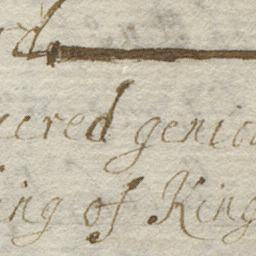 rd
acred genic
ing of King